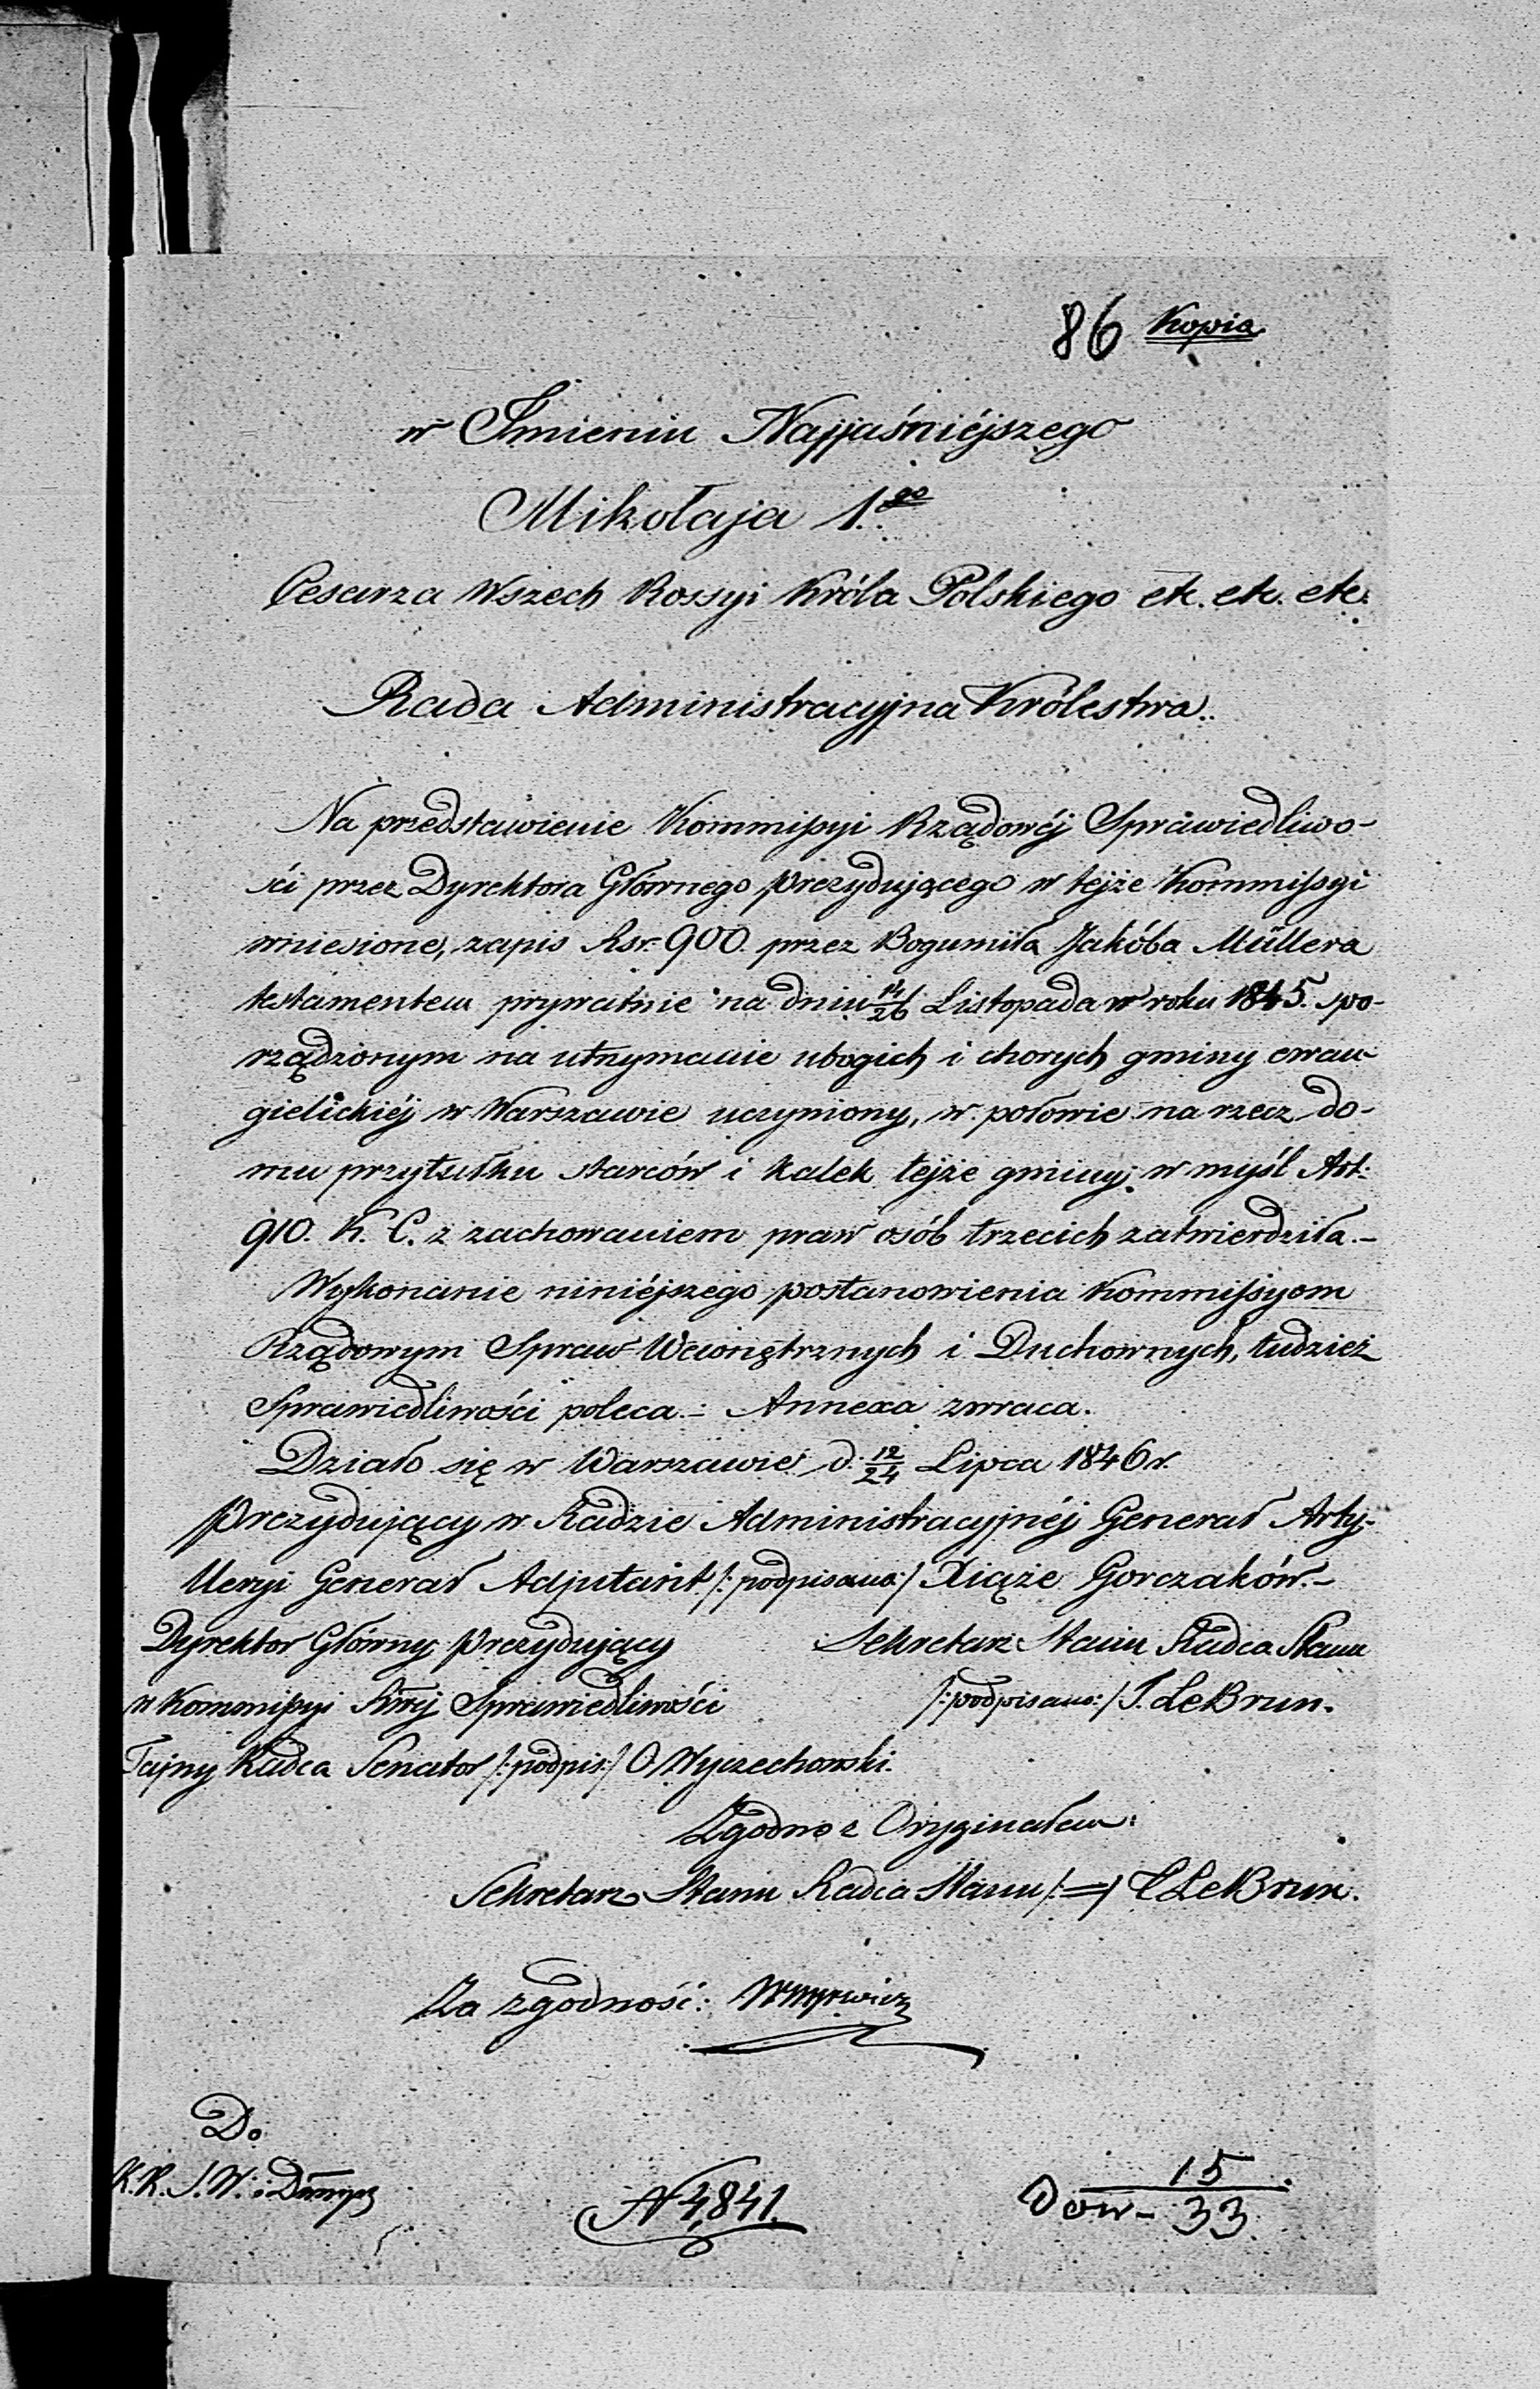 86 Kopia
w Imieniu Najjaśniéjszego
Mikołaja 1.go
Cesarza Wszech Rossyi Króla Polskiego etc. etc. etc.
Rada Administracyjna Królestwa.
Na przedstawienie Kommissyi Rządowéj Sprawiedliwo-
ści przez Dyrektora Głównego Prezydującego w tejże Kommissyi
wniesione, zapis Rsr. 900. przez Bogumiła Jakóba Müllera
testamentem prywatnie na dniu 14/26 Listopada w roku 1845. spo-
rządzonym na utrzymanie ubogich i chorych gminy ewan-
gielickiéj w Warszawie uczyniony, w połowie na rzecz do-
mu przytułku starców i kalek tejże gminy, w myśl Art.
910. K. C. z zachowaniem praw osób trzecich zatwierdziła.-
Wykonanie niniéjszego postanowienia Kommissyom
Rządowym Spraw Wewnętrznych i Duchownych, tudzież
Sprawiedliwości poleca.- Annexa zwraca.
Działo się w Warszawie d. 12/24 Lipca 1846 r.
Prezydujący w Radzie Administracyjnéj Generał Arty-
lleryi Generał Adjutant /:podpisano:/ Xiąże Gorczaków.-
Dyrektor Główny Prezydujący Sekretarz Stanu Radca Stanu
w Kommissyi Rwéj Sprawiedliwości /:podpisano:/ J. LeBrun.
Tajny Radca Senator /:podpis:/ O Wyczechowski.
Zgodno z Oryginałem:
Sekretarz Stanu Radca Stanu /:=/ LeBrun.
Za zgodność:
Do
K. R. S. W. i
N 4,841.
Dow- 15/33